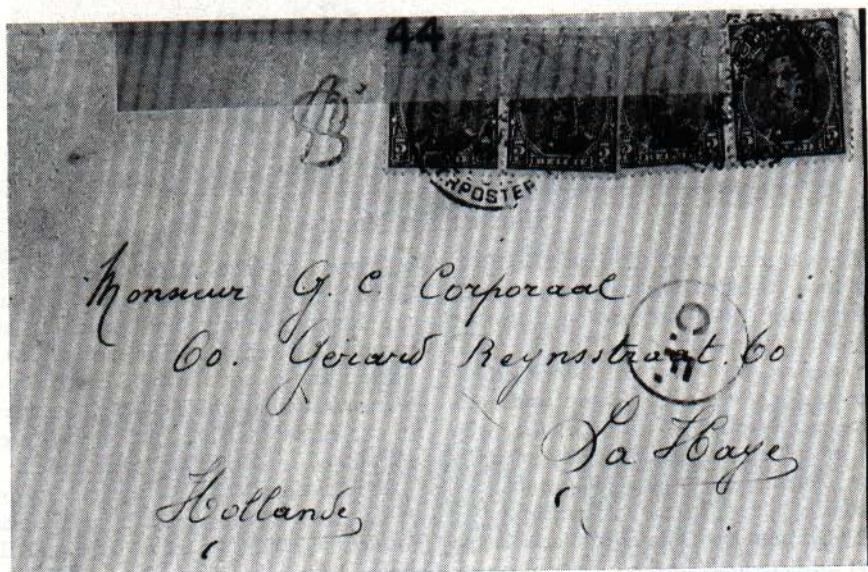 44
5 5 5 5 5 5
BELGIE
RPOSTER
Monsieur G. C. Corporaal
C.F.
60. Gerard Reynsstraat. 60
La Haye
Hollande